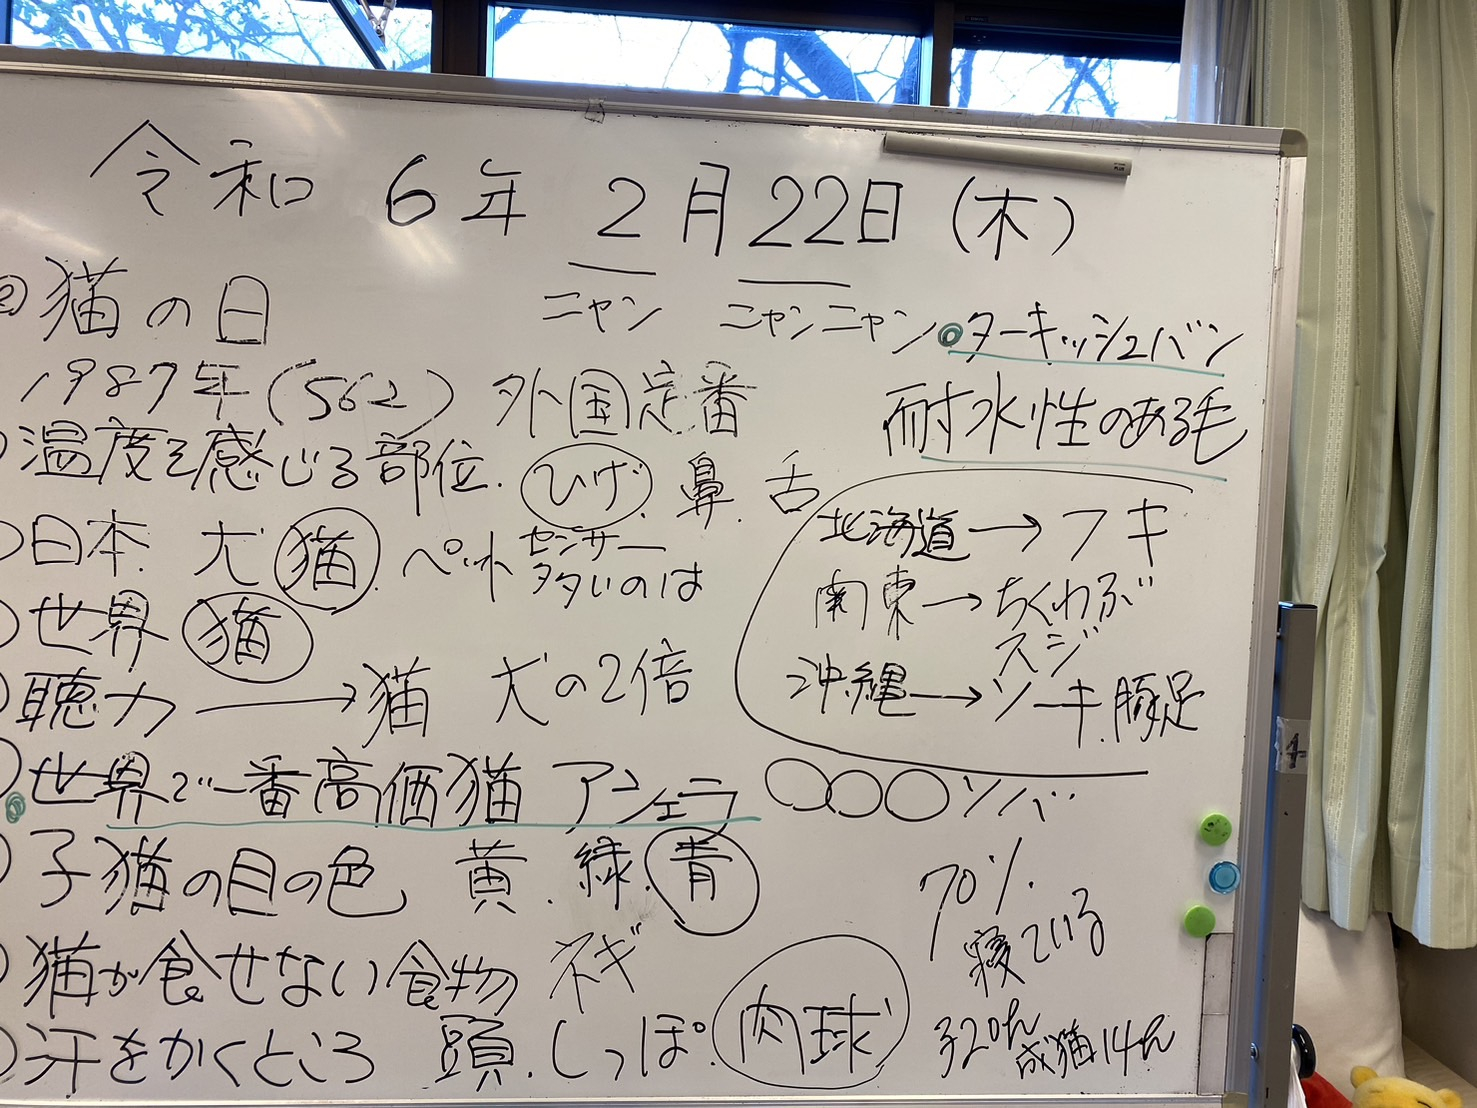 令和 6年 2月22日(木)
ニャン ニャンニャン
◎猫の日
1987年(S62) 外国定番
○温度を感じる部位. ひげ. 鼻. 舌
○日本. 犬 猫. ペット センサー
多いのは
○世界 猫
○聴力 → 猫 犬の2倍
○世界で一番高価猫 アシェラ
○子猫の目の色 黄. 緑. 青
○猫が食せない食物 ネギ
○汗をかくところ 頭. しっぽ. 肉球
◎ターキッシュバン
耐水性のある毛
北海道→フキ
関東→ちくわぶ
スジ
沖縄→ソーキ.豚足
○○○ソバ
70%
寝ている
子20h
成猫14h